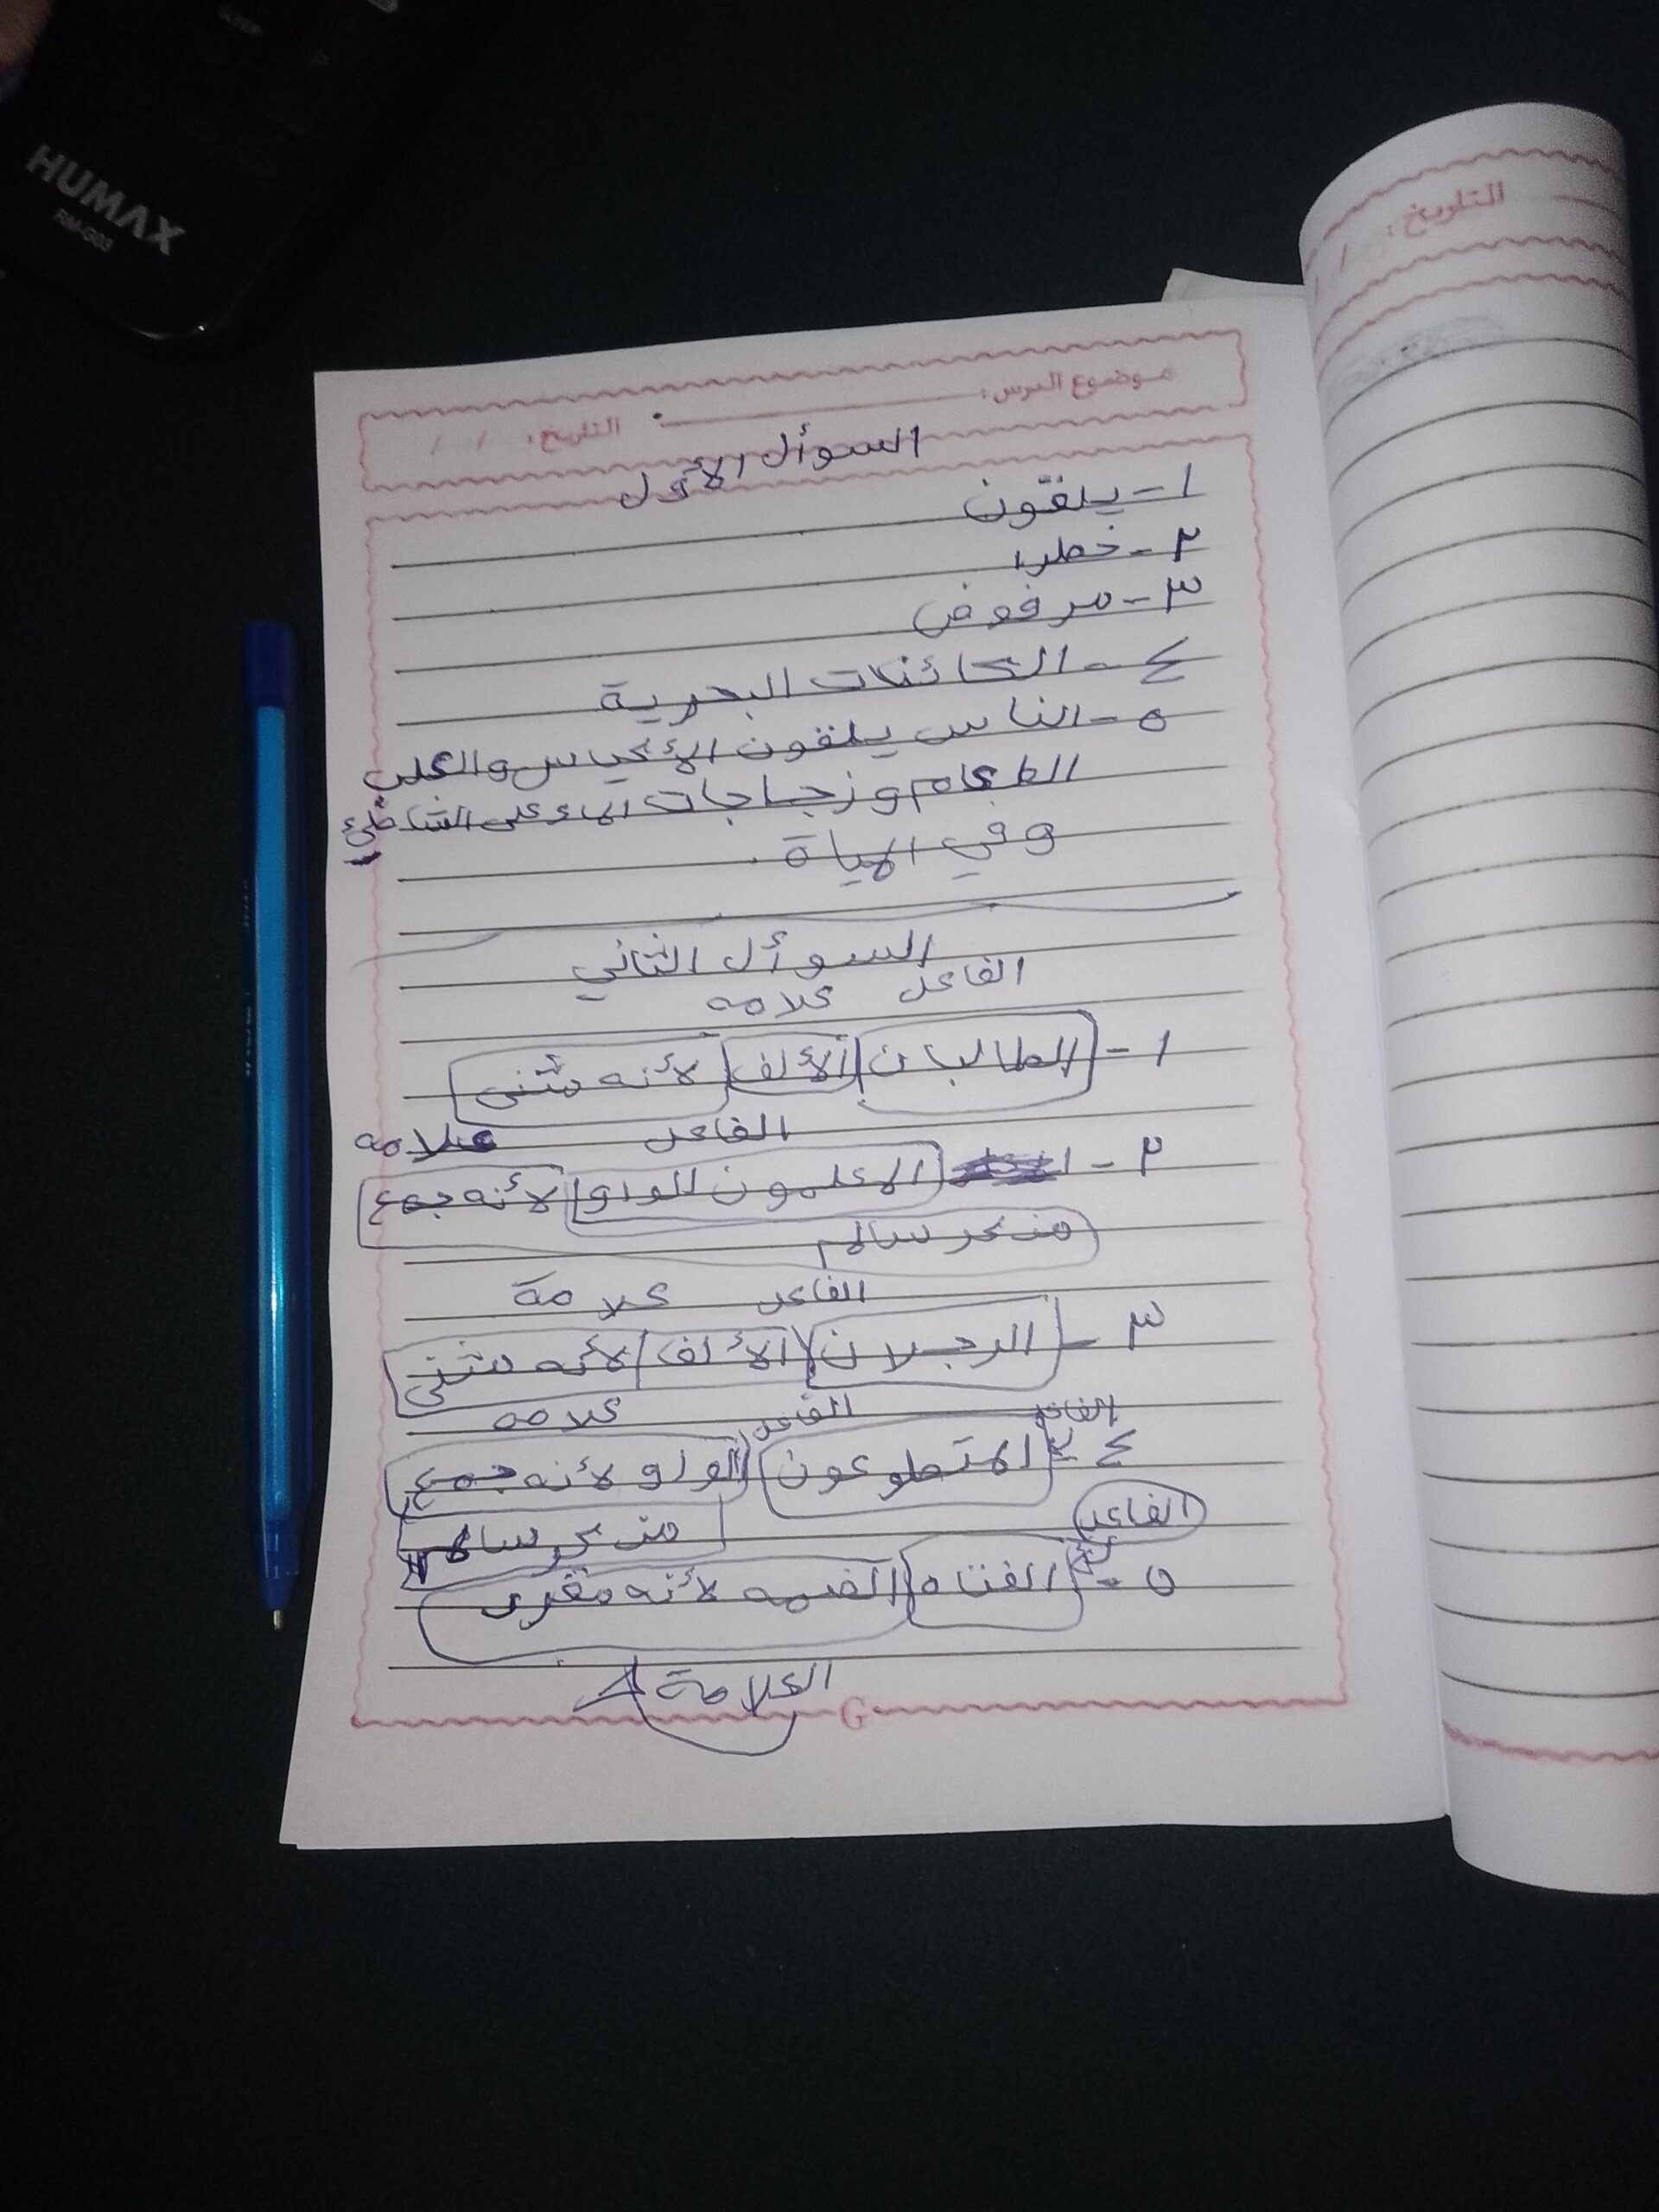 SLEEP
HUMAX
RM-G03
التاريخ: / /
موضوع الدرس:
التاريخ: / /
السوأل الأول
١- يلقون
٢- خطرا
٣- مرفوض
٤- الكائنات البحرية
٥- الناس يلقون الأكياس والعلب
الطعام وزجاجات الماء على الشاطئ
وفي المياة.
السوأل الثاني
الفاعل علامه
١- الطالبان الألف لأنه مثنى
الفاعل علامه
٢- المعلمون الواو لأنه جمع
مذكر سالم
الفاعل علامة
٣- الرجلان الألف لأنه مثنى
الفاعل الفاعل علامه
٤- المتطوعون الواو لأنه جمع
مذكر سالم
الفاعل
٥- الفتاه الضمه لأنه مفرد
العلامة
G